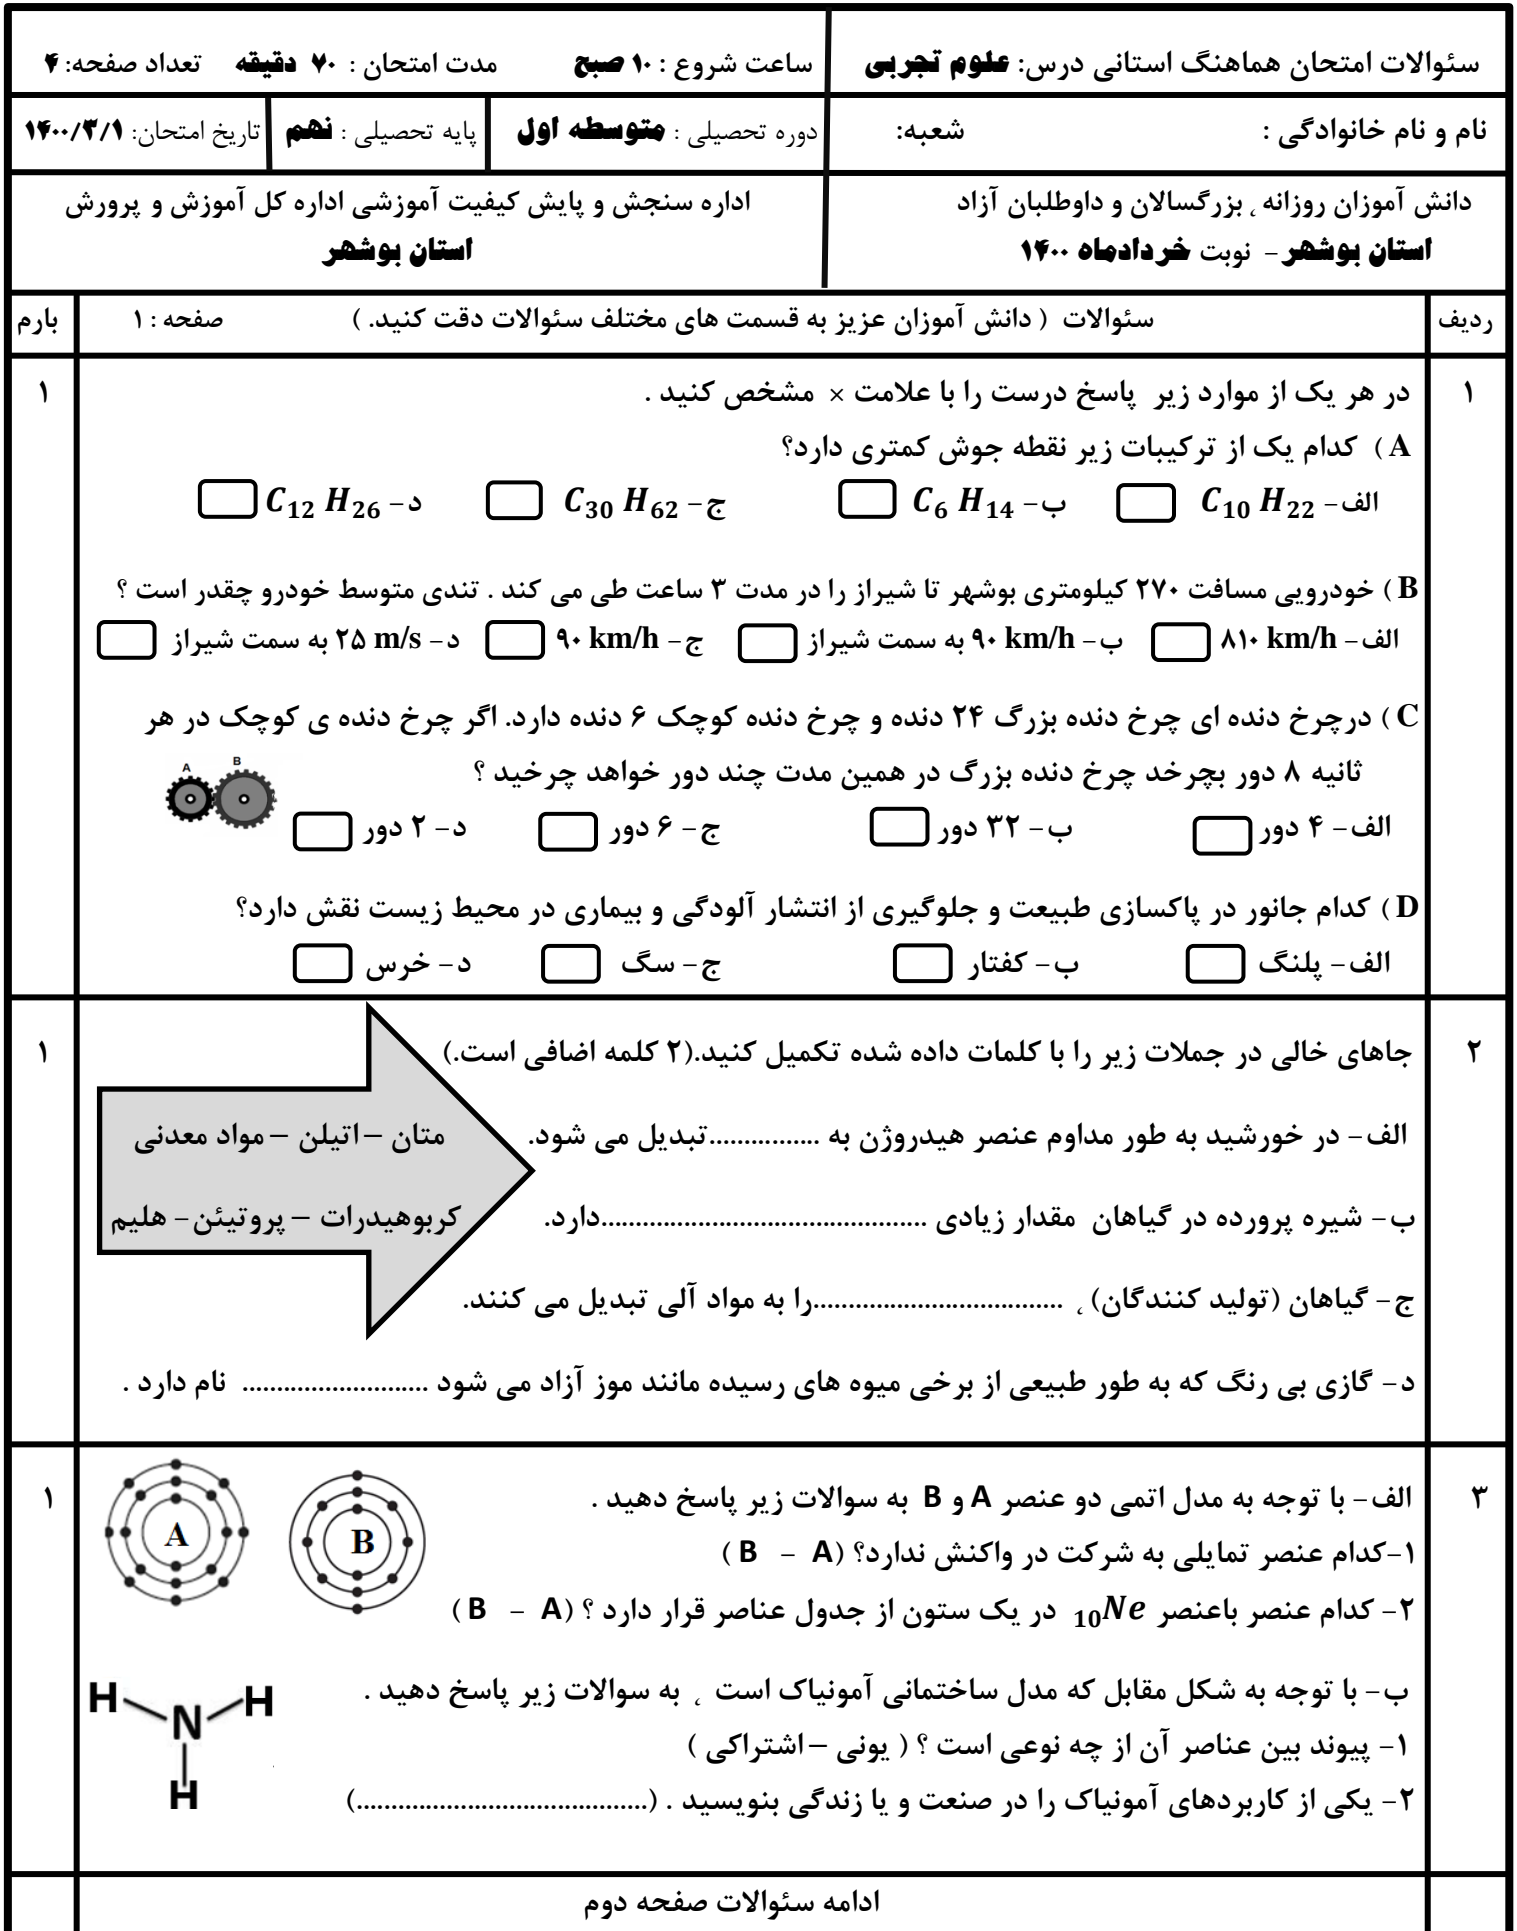 سئوالات امتحان هماهنگ استانی درس: علوم تجربی ساعت شروع : ۱۰ صبح مدت امتحان : ۷۰ دقیقه تعداد صفحه: ۴
نام و نام خانوادگی : شعبه: دوره تحصیلی : متوسطه اول پایه تحصیلی : نهم تاریخ امتحان: ۱۴۰۰/۳/۱
دانش آموزان روزانه ، بزرگسالان و داوطلبان آزاد
استان بوشهر - نوبت خردادماه ۱۴۰۰
اداره سنجش و پایش کیفیت آموزشی اداره کل آموزش و پرورش
استان بوشهر
ردیف سئوالات ( دانش آموزان عزیز به قسمت های مختلف سئوالات دقت کنید. ) صفحه : ۱ بارم
۱ در هر یک از موارد زیر پاسخ درست را با علامت × مشخص کنید . ۱
A ) کدام یک از ترکیبات زیر نقطه جوش کمتری دارد؟
الف- C₁₀ H₂₂ ب- C₆ H₁₄ ج- C₃₀ H₆₂ د- C₁₂ H₂₆
B ) خودرویی مسافت ۲۷۰ کیلومتری بوشهر تا شیراز را در مدت ۳ ساعت طی می کند . تندی متوسط خودرو چقدر است ؟
الف- ۸۱۰ km/h ب- ۹۰ km/h به سمت شیراز ج- ۹۰ km/h د- ۲۵ m/s به سمت شیراز
C ) درچرخ دنده ای چرخ دنده بزرگ ۲۴ دنده و چرخ دنده کوچک ۶ دنده دارد. اگر چرخ دنده ی کوچک در هر
ثانیه ۸ دور بچرخد چرخ دنده بزرگ در همین مدت چند دور خواهد چرخید ؟
A B
الف- ۴ دور ب- ۳۲ دور ج- ۶ دور د- ۲ دور
D ) کدام جانور در پاکسازی طبیعت و جلوگیری از انتشار آلودگی و بیماری در محیط زیست نقش دارد؟
الف- پلنگ ب- کفتار ج- سگ د- خرس
۲ جاهای خالی در جملات زیر را با کلمات داده شده تکمیل کنید.(۲ کلمه اضافی است.) ۱
الف- در خورشید به طور مداوم عنصر هیدروژن به ................تبدیل می شود.
متان – اتیلن – مواد معدنی
ب- شیره پرورده در گیاهان مقدار زیادی ..............................................دارد.
کربوهیدرات – پروتیئن- هلیم
ج- گیاهان (تولید کنندگان) ، ....................................را به مواد آلی تبدیل می کنند.
د- گازی بی رنگ که به طور طبیعی از برخی میوه های رسیده مانند موز آزاد می شود ........................... نام دارد .
۳ الف- با توجه به مدل اتمی دو عنصر A و B به سوالات زیر پاسخ دهید . ۱
A B
۱-کدام عنصر تمایلی به شرکت در واکنش ندارد؟ (B - A )
۲- کدام عنصر باعنصر ₁₀Ne در یک ستون از جدول عناصر قرار دارد ؟ (B - A )
ب- با توجه به شکل مقابل که مدل ساختمانی آمونیاک است ، به سوالات زیر پاسخ دهید .
H N H
H
۱- پیوند بین عناصر آن از چه نوعی است ؟ ( یونی – اشتراکی )
۲- یکی از کاربردهای آمونیاک را در صنعت و یا زندگی بنویسید . (..........................................)
ادامه سئوالات صفحه دوم